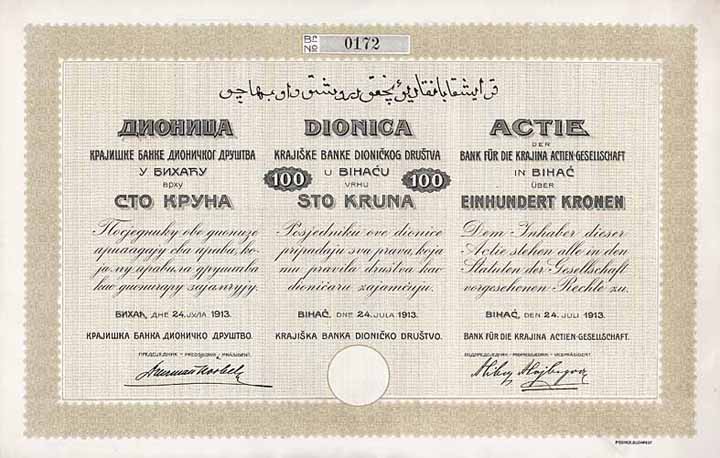 Br. No 0172
قرايشقا بانقا
ДИОНИЦА
КРАЈИШКЕ БАНКЕ ДИОНИЧКОГ ДРУШТВА
У БИХАЋУ
ВРХУ
СТО КРУНА
Посједнику ове дионице
припадају сва права, ко-
ја му правила друштва
као дионичару зајамчују.
БИХАЋ, ДНЕ 24. ЈУЛА 1913.
КРАЈИШКА БАНКА ДИОНИЧКО ДРУШТВО.
DIONICA
KRAJIŠKE BANKE DIONIČKOG DRUŠTVA
100 U BIHAĆU 100
VRHU
STO KRUNA
Posjedniku ove dionice
pripadaju sva prava, koja
mu pravila društva kao
dioničaru zajamčuju.
BIHAĆ, DNE 24. JULA 1913.
KRAJIŠKA BANKA DIONIČKO DRUŠTVO.
ACTIE
DER
BANK FÜR DIE KRAJINA ACTIEN-GESELLSCHAFT
IN BIHAĆ
ÜBER
EINHUNDERT KRONEN
Dem Inhaber dieser
Actie stehen alle in den
Statuten der Gesellschaft
vorgesehenen Rechte zu.
BIHAĆ, DEN 24. JULI 1913.
BANK FÜR DIE KRAJINA ACTIEN-GESELLSCHAFT.
ПРЕДСЈЕДНИК - PREDSJEDNIK - PRÄSIDENT.